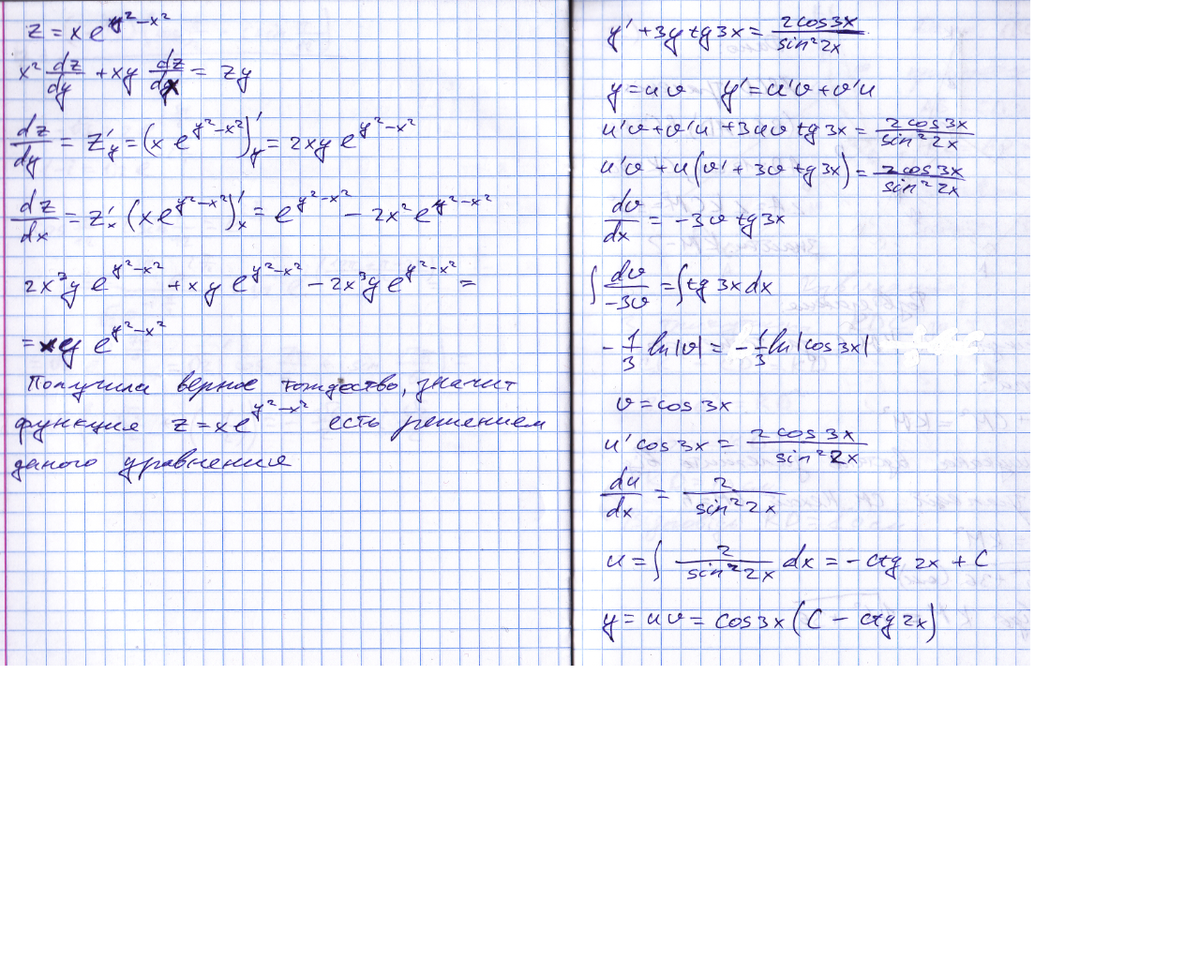 z = x e^{y²-x²}
x² dz/dy + xy dz/dx = zy
dz/dy = z'_y = (x e^{y²-x²})'_y = 2xy e^{y²-x²}
dz/dx = z'_x (x e^{y²-x²})'_x = e^{y²-x²} - 2x² e^{y²-x²}
2x³y e^{y²-x²} + xy e^{y²-x²} - 2x³y e^{y²-x²} =
= xy e^{y²-x²}
Получила верное тождество, значит
функция z = x e^{y²-x²} есть решением
даного уравнения
y' + 3y tg 3x = 2cos3x / sin²2x
y = uv y' = u'v + v'u
u'v + v'u + 3uv tg 3x = 2cos3x / sin²2x
u'v + u(v' + 3v tg 3x) = 2cos3x / sin²2x
dv/dx = -3v tg 3x
∫ dv/-3v = ∫ tg 3x dx
- 1/3 ln|v| = - 1/3 ln|cos 3x|
v = cos 3x
u' cos 3x = 2 cos 3x / sin²2x
du/dx = 2 / sin²2x
u = ∫ 2 / sin²2x dx = - ctg 2x + C
y = uv = cos3x (C - ctg 2x)